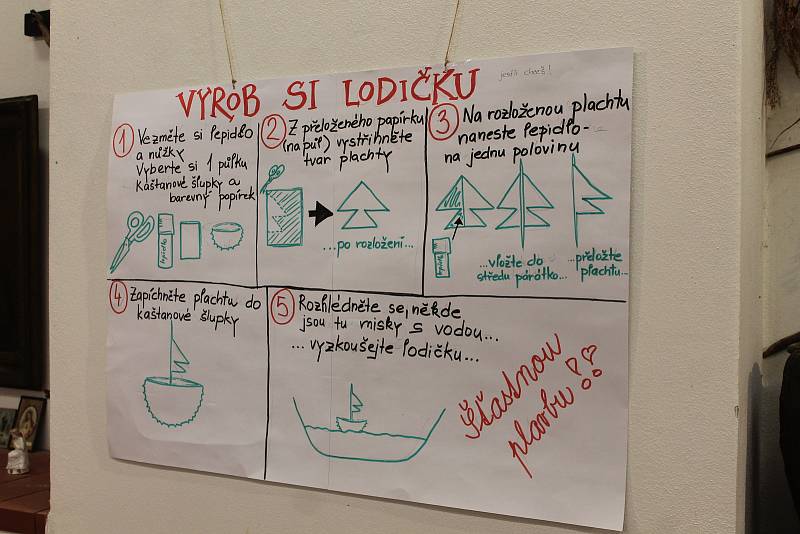 jestli chceš!
VYROB SI LODIČKU
1 Vezměte si lepidlo
a nůžky
Vyberte si 1 půlku
kaštanové šlupky a
barevný papírek
lepidlo
2 Z přeloženého papírku
(na půl) vystřihněte
tvar plachty
...po rozložení...
3 Na rozloženou plachtu
naneste lepidlo -
na jednu polovinu
...vložte do
středu párátko...
...přeložte
plachtu...
4 Zapíchněte plachtu do
kaštanové šlupky
5 Rozhlédněte se, někde
jsou tu misky s vodou...
...vyzkoušejte lodičku...
Šťastnou
plavbu!!